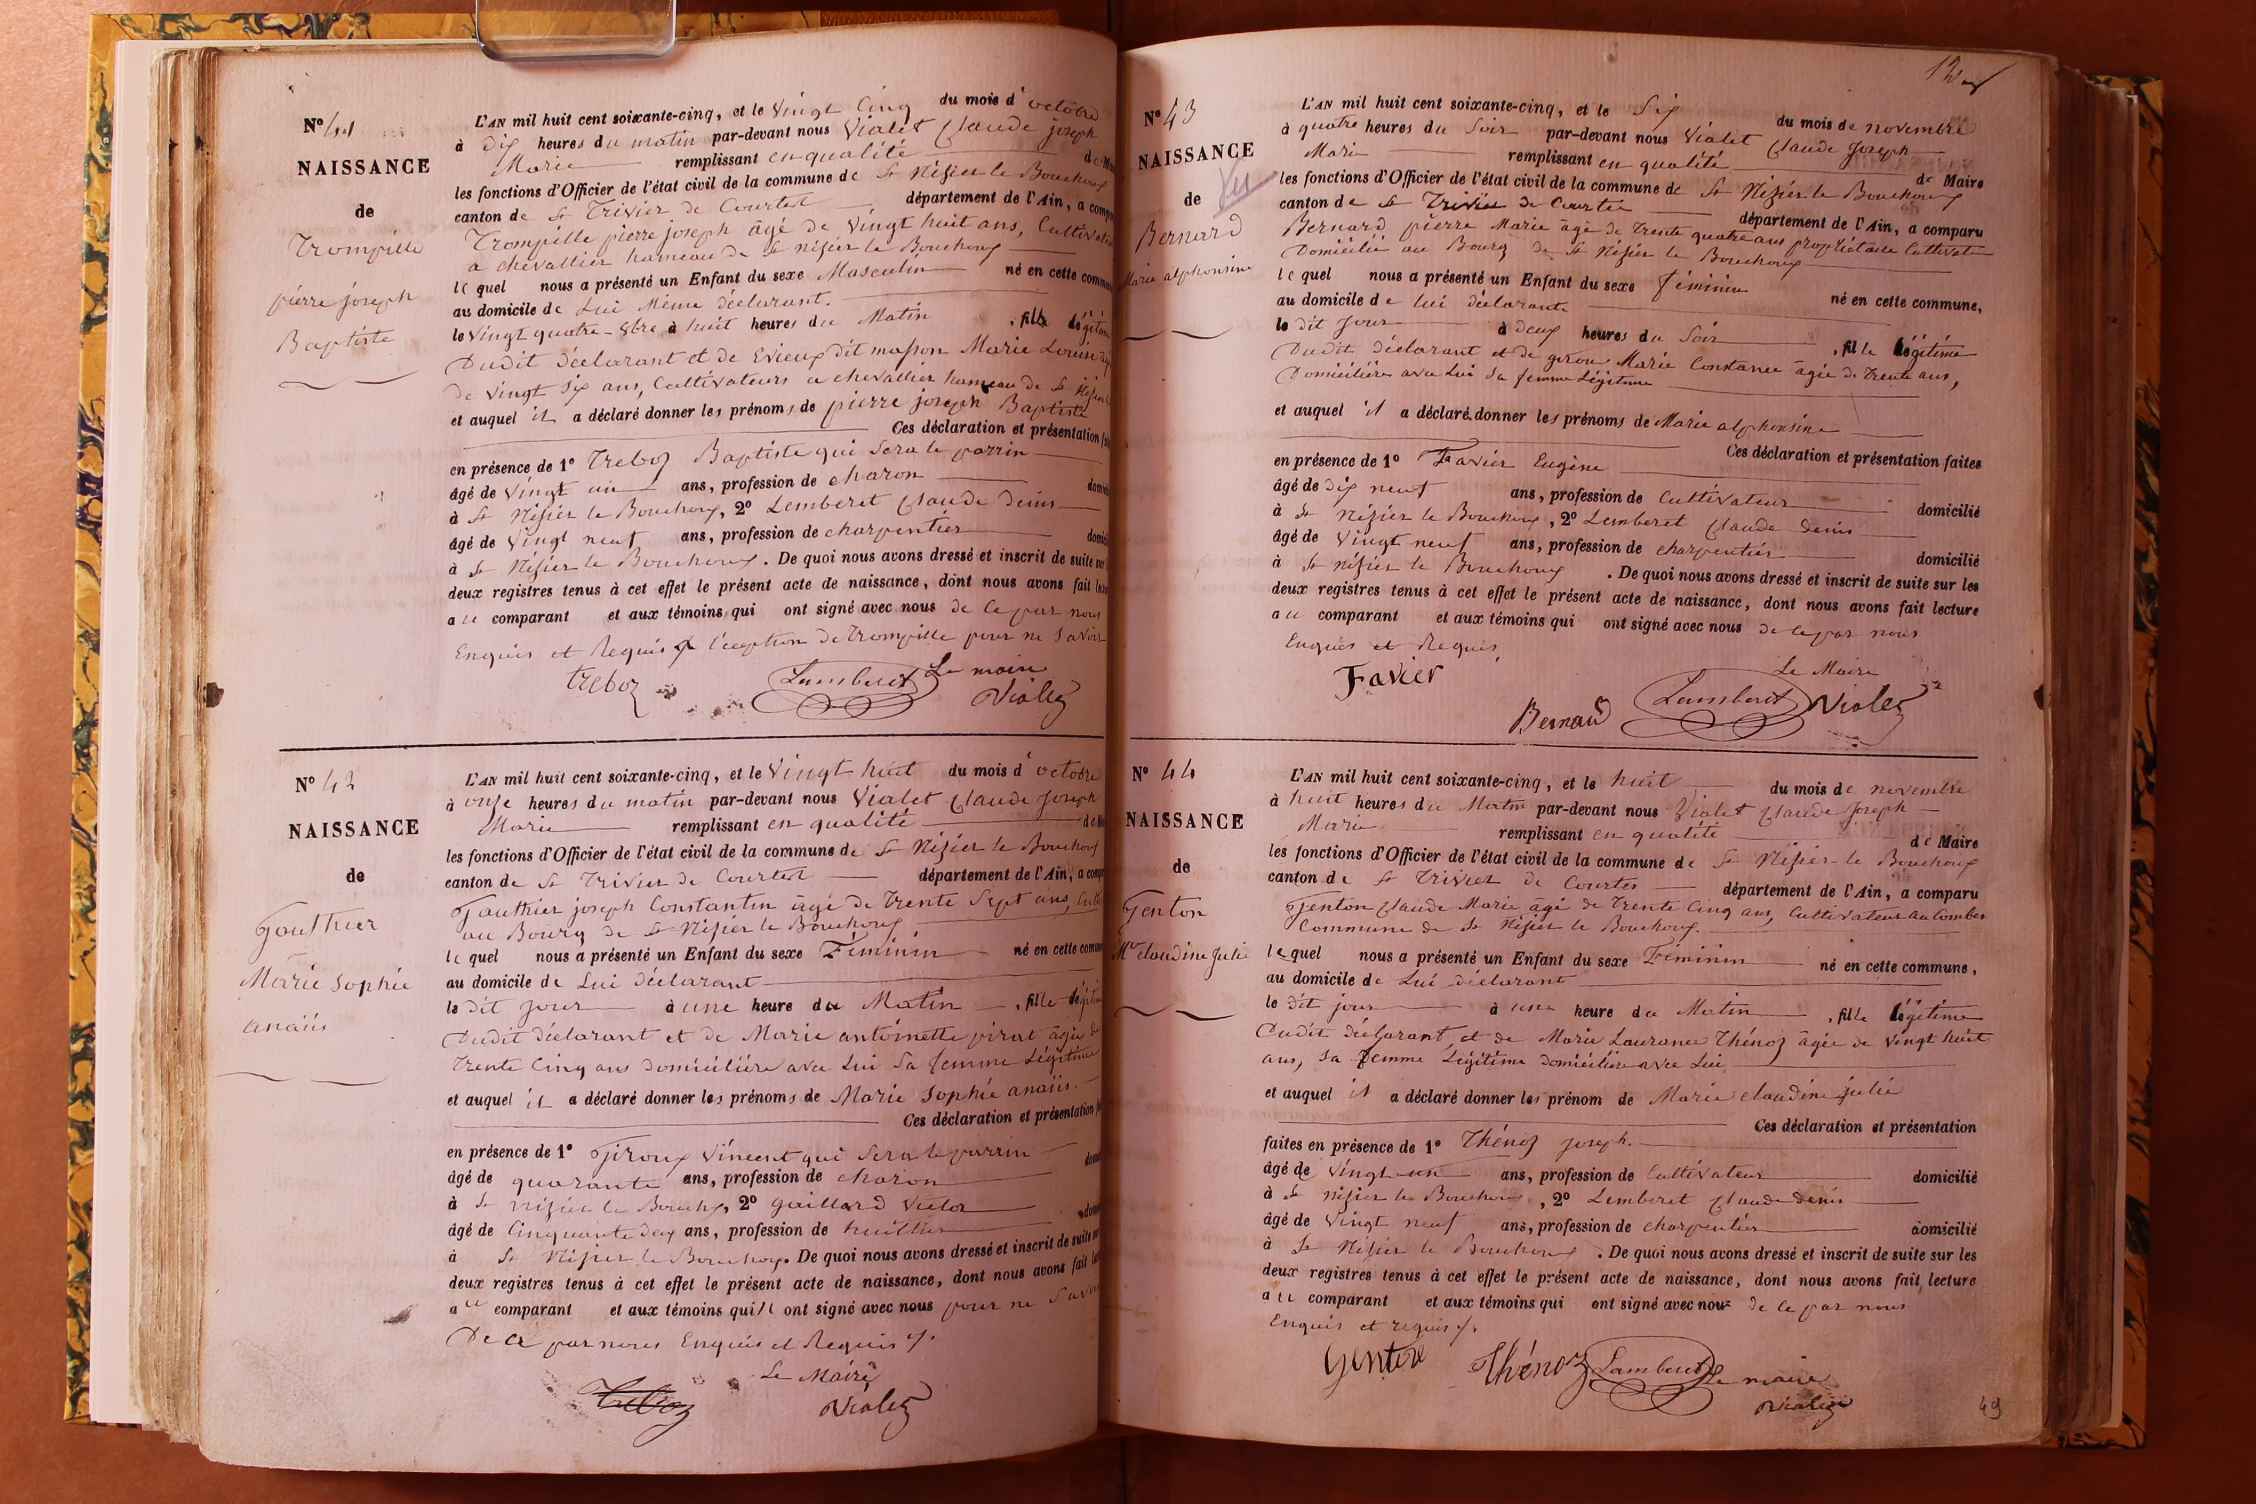 N° 41
NAISSANCE
de
Trompille
pierre joseph
Baptiste
L'AN mil huit cent soixante-cinq, et le vingt Cinq du mois d'octobre
à dix heures du matin par-devant nous Vialet Claude joseph
Marie remplissant en qualité de
les fonctions d'Officier de l'état civil de la commune de St Nizier le Bouchoux
canton de St Trivier de Courtest département de l'Ain, a
Trompille pierre joseph âgé de vingt huit ans,
a chevallier hameau de St nizier le Bouchoux
le quel nous a présenté un Enfant du sexe Masculin né en cette
au domicile de Lui Même déclarant.
le vingt quatre 8bre à huit heures du Matin , fils
Dudit déclarant et de Evieux dit masson Marie Louise
de vingt six ans, Cultivateurs a chevallier hameau de St
et auquel il a déclaré donner les prénoms de pierre joseph Baptiste
Ces déclaration et présentation
en présence de 1° Treboz Baptiste qui sera le parrin
âgé de vingt un ans, profession de charon
à St Nizier le Bouchoux, 2° Lemberet Claude Denis
âgé de vingt neuf ans, profession de charpentier
à St Nizier le Bouchoux. De quoi nous avons dressé et inscrit de suite
deux registres tenus à cet effet le présent acte de naissance, dont nous avons fait
au comparant et aux témoins qui ont signé avec nous de ce par nous
Enquis et Requis à l'éception de Trompille pour ne savoir
Le maire
treboz Lamberet Violet
N° 42
NAISSANCE
de
Gauthier
Marie Sophie
anaïis
L'AN mil huit cent soixante-cinq, et le vingt huit du mois d'octobre
à onze heures du matin par-devant nous Vialet Claude Joseph
Marie remplissant en qualité
les fonctions d'Officier de l'état civil de la commune de St Nizier le Bouchoux
canton de St Trivier de Courtest département de l'Ain, a
Gauthier joseph Constantin âgé de trente Sept ans,
au Bourg de St Nizier le Bouchoux
le quel nous a présenté un Enfant du sexe Féminin né en cette
au domicile de Lui déclarant
le dit jour à une heure du Matin , fille
Dudit déclarant et de Marie antoinette pirat âgée de
trente Cinq ans domiciliée avec Lui Sa femme Légitime
et auquel il a déclaré donner les prénoms de Marie Sophie anaïis.
Ces déclaration et présentation
en présence de 1° Giroux Vincent qui sera le parrin
âgé de quarante ans, profession de charon
à St nizier le Bouchx, 2° gaillard Victor
âgé de Cinquante deux ans, profession de huillier
à St Nizier le Bouchoux. De quoi nous avons dressé et inscrit de suite
deux registres tenus à cet effet le présent acte de naissance, dont nous avons fait
au comparant et aux témoins qui ont signé avec nous pour ne Savoir
De ce par nous Enquis et Requis
Le Maire
Treboz Violet
N° 43
NAISSANCE
de
Vu
Bernard
Marie alphonsine
L'AN mil huit cent soixante-cinq, et le Six du mois de novembre
à quatre heures du Soir par-devant nous Vialet Claude Joseph
Marie remplissant en qualité de Maire
les fonctions d'Officier de l'état civil de la commune de St Nizier le Bouchoux
canton de St Trivier de Courtes département de l'Ain, a comparu
Bernard pierre Marie âgé de trente quatre ans propriétaire Cultivateur
Domicilié au Bourg de St Nizier le Bouchoux
le quel nous a présenté un Enfant du sexe féminin né en cette commune,
au domicile de lui déclarant
le dit Jour à deux heures du Soir , fille légitime
Dudit déclarant et de giroux Marie Constance âgée de trente ans,
Domiciliée avec Lui Sa femme Légitime
et auquel il a déclaré donner les prénoms de Marie alphonsine
Ces déclaration et présentation faites
en présence de 1° Favier Eugène
âgé de dix neuf ans, profession de Cultivateur domicilié
à St Nizier le Bouchoux, 2° Lemberet Claude denis
âgé de vingt neuf ans, profession de charpentier domicilié
à St nizier le Bouchoux. De quoi nous avons dressé et inscrit de suite sur les
deux registres tenus à cet effet le présent acte de naissance, dont nous avons fait lecture
au comparant et aux témoins qui ont signé avec nous de ce par nous
Enquis et Requis
Le Maire
Favier Bernard Lamberet Violet
N° 44
NAISSANCE
de
Genton
Mie claudine Julie
L'AN mil huit cent soixante-cinq, et le huit du mois de novembre
à huit heures du Matin par-devant nous Vialet Claude Joseph
Marie remplissant en qualité de Maire
les fonctions d'Officier de l'état civil de la commune de St Nizier le Bouchoux
canton de St Trivier de Courtes département de l'Ain, a comparu
Genton Claude Marie âgé de trente Cinq ans, Cultivateur au Combes
Commune de St Nizier le Bouchoux.
le quel nous a présenté un Enfant du sexe Féminin né en cette commune,
au domicile de Lui déclarant
le dit jour à une heure du Matin , fille légitime
Dudit déclarant et de Marie Laurance Thénoz âgée de vingt huit
ans, Sa femme Légitime domiciliée avec Lui
et auquel il a déclaré donner les prénom de Marie claudine julie
Ces déclaration et présentation
faites en présence de 1° Thénoz joseph.
âgé de vingt un ans, profession de Cultivateur domicilié
à St Nizier le Bouchoux, 2° Lemberet Claude denis
âgé de vingt neuf ans, profession de charpentier domicilié
à St Nizier le Bouchoux. De quoi nous avons dressé et inscrit de suite sur les
deux registres tenus à cet effet le présent acte de naissance, dont nous avons fait lecture
au comparant et aux témoins qui ont signé avec nous de ce par nous
Enquis et requis
Thénoz Lamberet Le maire
Violet
49